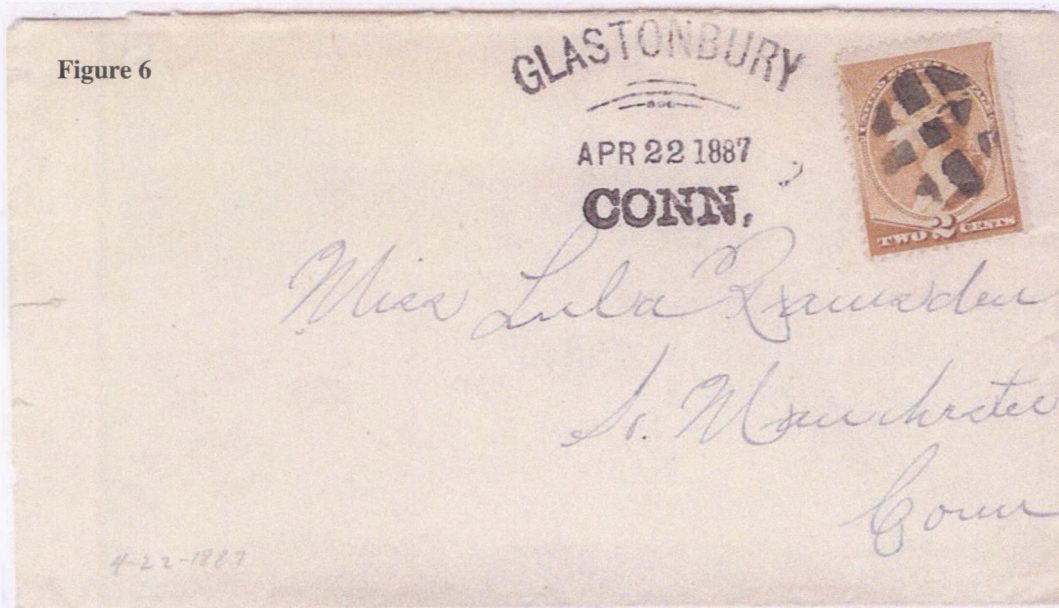 Figure 6
GLASTONBURY
APR 22 1887
CONN.
TWO 2 CENTS
Miss Lula Ramsden
So. Manchester
Conn
4-22-1887